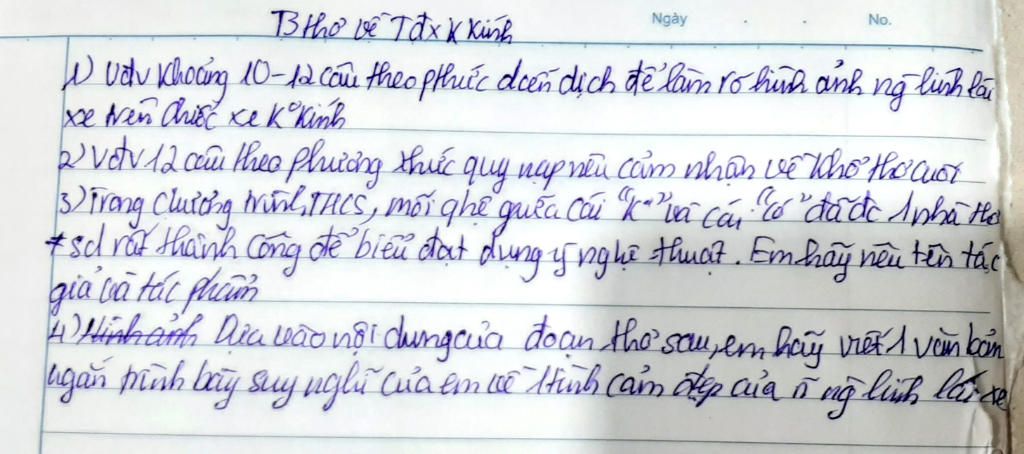 Ngày . . No.
B thơ về Tđx K Kính
1) Vđv khoảng 10-12 câu theo pthức diễn dịch để làm rõ hình ảnh ng lính lái
xe trên chiếc xe K° kính
2) Vđv 12 câu theo phương thức quy nạp nêu cảm nhận về khổ thơ cuối
3) Trong chương trình THCS, mối qhệ giữa cái "K°" và cái "có" đã đc 1 nhà thơ
* sd rất thành công để biểu đạt dụng ý nghệ thuật. Em hãy nêu tên tác
giả và tác phẩm
4) Hình ảnh Dựa vào nội dung của đoạn thơ sau, em hãy viết 1 văn bản
ngắn trình bày suy nghĩ của em về tình cảm đẹp của n ng lính lái xe